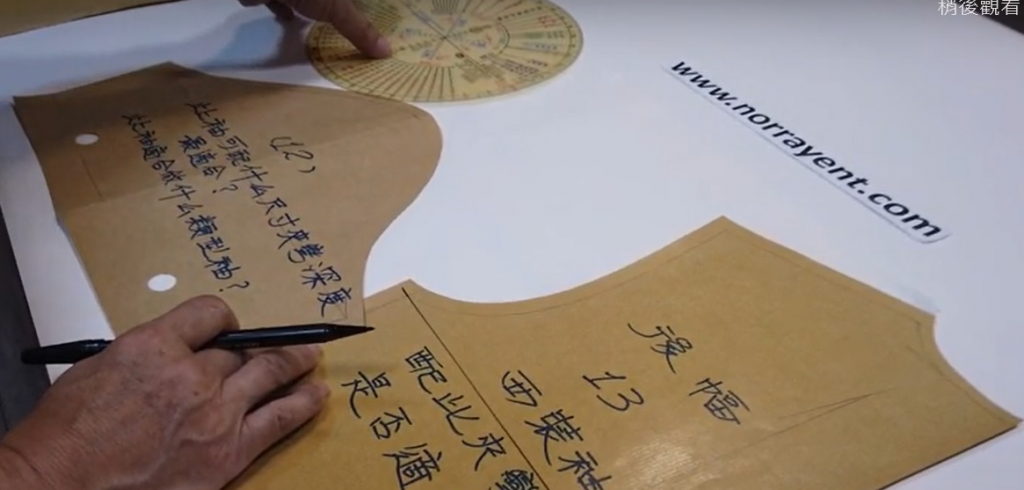 稍後觀看
www.norrayent.com
(12)
此袖可配什么尺寸夾彎深度
最適合?
此袖適合做什么類型袖?
後幅
13
西裝袖
配此夾彎
是否適